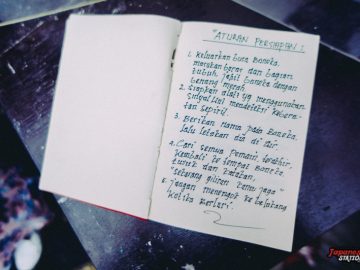 "ATURAN PERSIAPAN":
1. Keluarkan busa boneka,
masukan beras dan bagian
tubuh, jahit boneka dengan
benang merah.
2. Siapkan alat yg menggunakan
sinyal utk mendeteksi kebera-
dan spirit.
3. Berikan nama pada boneka,
lalu letakan dia di air.
4. Cari semua pemain terakhir,
kembali ke tempat boneka,
tusuk dan katakan,
"sekarang giliran kamu jaga"
5. Jangan menengok ke belakang
ketika berlari.
Japanese
STATION